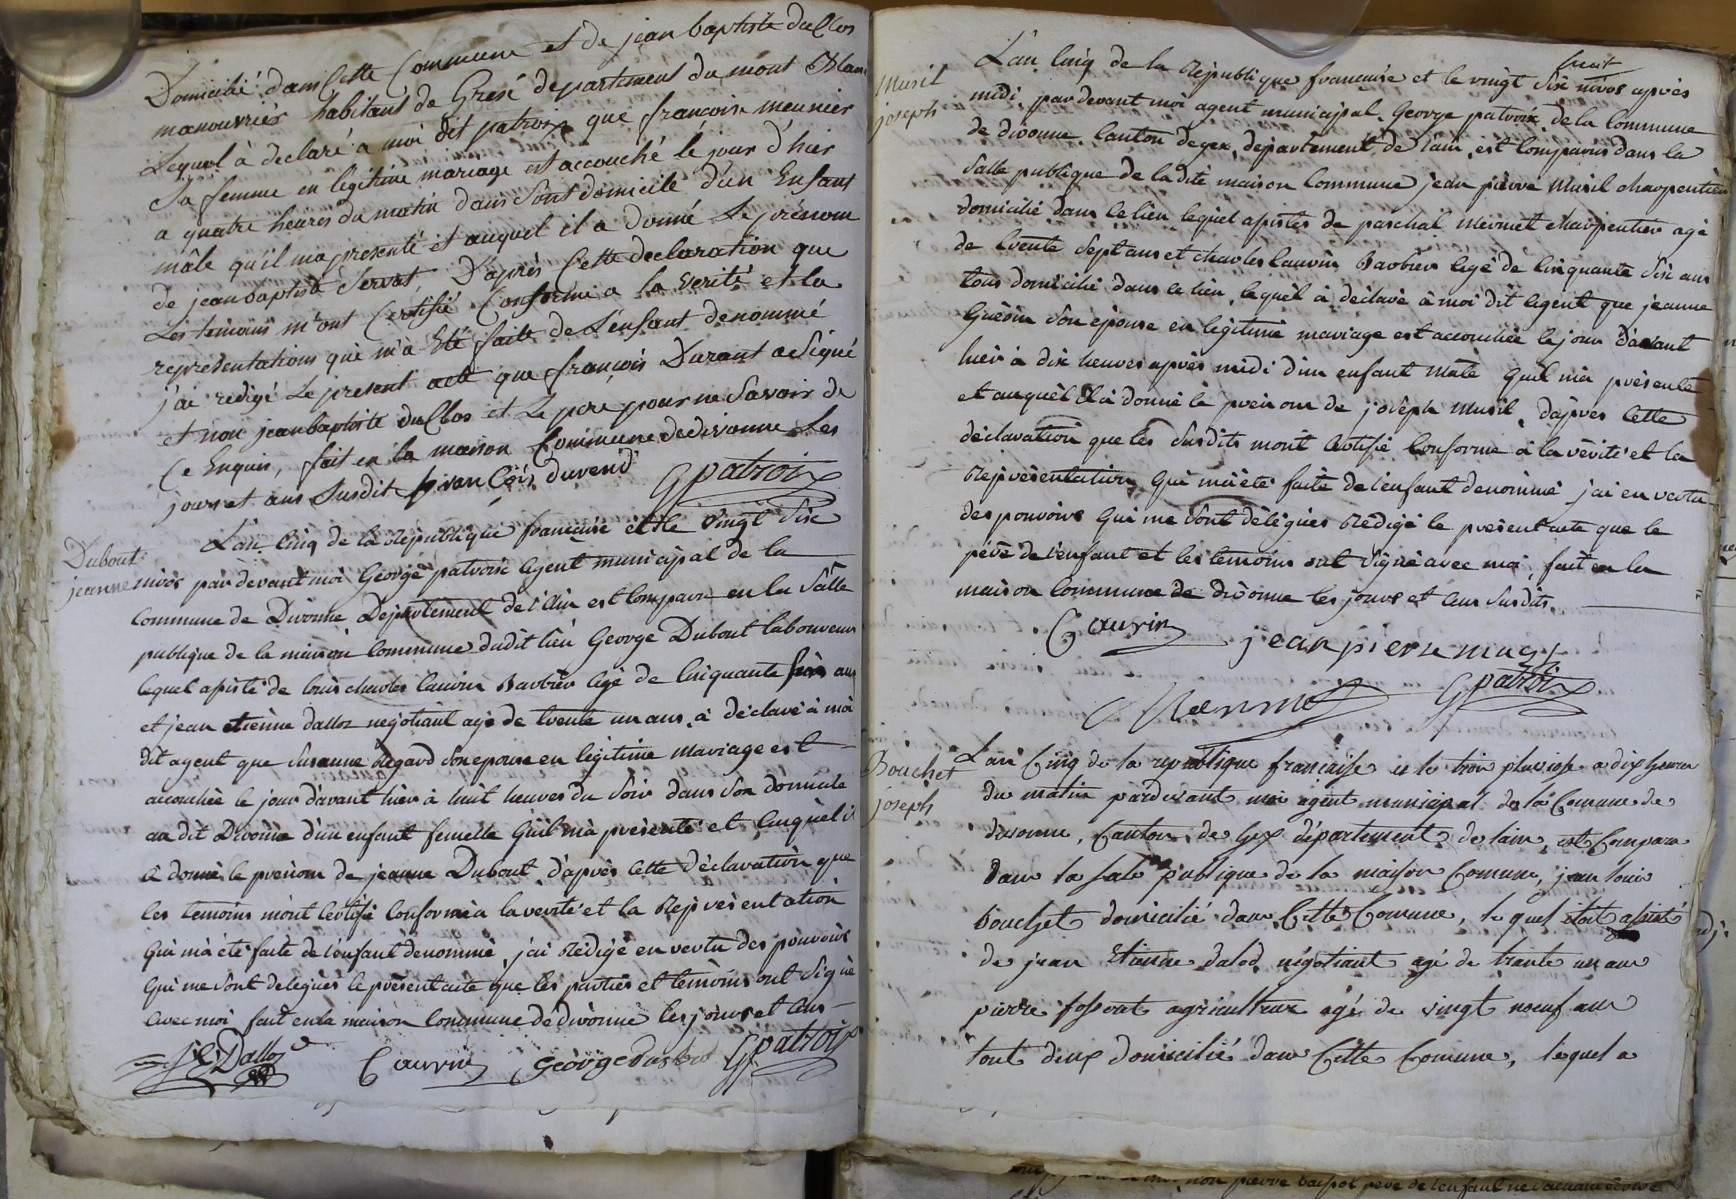 Domicilié dans Cette Commune et de jean baptiste duClos
manouvriés habitant de Gresé departement du mont Blanc
Lequel à declaré a moi dit patroix que françoise meunier
Sa femme en legitime mariage est accouché le jour d'hier
a quatre heures du matin dans Sont domicile d'un Enfant
mâle qu'il ma presenté et auquel il a donné Le prénom
de jean baptiste Servat, D'après Cette declaration que
Les temoins m'ont Certifié Conforme a la verité et la
representations qui m'à Eté faite de L'enfant denommé
j'ai redigé Le present acte que françois Durant a Signé
et non jean baptiste duClos et Le pere pour ne Savoir de
Ce Enquis, fait en la maison Commune de divonne Les
jours et ans Susdit françois durend
Gpatroix
Dubout
jeanne
L'an Cinq de la République francaise et le vingt Six
nivos par devant moi George patroix Agent municipal de la
Commune de Divonne Departement de l'Ain est Comparu en la Salle
publique de la maison Commune dudit lieu George Dubout laboureur
lequel asisté de louis charles Cauvin Barbier agé de Cinquante Six ans
et jean etienne Dalloz negotiant agé de trente un ans, à déclaré à moi
dit agent que Susanne Regard Son epouse en légitime Mariage est
accouchée le jour d'avant hier à huit heures du Soir dans Son domicile
au dit Divonne d'un enfant femelle Quil mà présenté et Auquèl il
a donné le prénom de jeanne Dubout, d'après Cette déclaration que
les temoins mont Certifié Conforme à la verité et la Représentation
Qui mà été faite de l'enfant denommé, j'ai Rédigé en vertu des pouvoirs
Qui me Sont delegués le présent acte que les parties et temoins ont Signé
avec moi fait en la maison Commune de divonne les jours et Ans
JE Dalloz Cauvin George Dubout Gpatroix
Musil
joseph
huit
L'an Cinq de la République francaise et le vingt Six nivos après
midi, par devant moi agent municipal, George patroix de la Commune
de divonne, Canton de gex, departement de l'ain, est Comparus dans la
Salle publique de la dite maison Commune jean pierre Musil charpentier
domicilié dans ce lieu lequel asistés de paschal Meunet charpentier agé
de trente Sept ans et charles Cauvin Barbier Agé de Cinquante Six ans
tous domicilié dans ce lieu, lequèl à déclaré à moi dit Agent que jeanne
Guèrin Son epouse en legitime mariage est accouchée le jour D'avant
hier à dix heures après midi d'un enfant mâle Quil mà présenté
et auquèl il à donné le prénom de joseph Musil, d'après Cette
déclaration que les Susdits m'ont Certifié Conforme à la vérité et la
Représentation Qui mà été faite de l'enfant denommé j'ai en vertu
des pouvoirs Qui me Sont délégués Rédigé le présent acte que le
père de l'enfant et les temoins ont Signé avec moi, fait en la
maison Commune de divonne les jours et Ans Susdits
Cauvin jean pierre
Gpatroix
Bouchet
joseph
L'an Cinq de la republique française et le trois pluviose a dix heures
du matin pardevant moi agent municipal de la Comune de
divonne, Canton de Gex département de lain, est Comparu
dans la sale publique de la maison Comune, jean louis
bouchet domicilié dans Cette Comune, le quel étoit assisté
de jean Etienne dalod négotiant agé de trante un ans
pierre fosseret agriculteur agé de vingt neuf ans
tout deux domicilié dans Cette Comune, lequel a